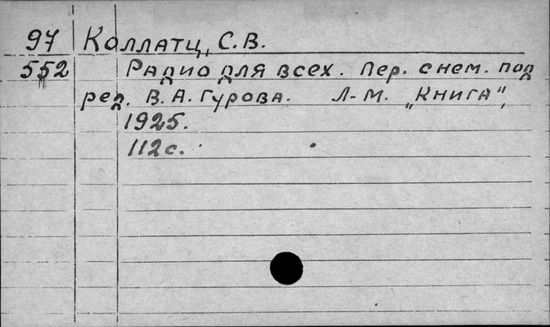 97 Каллатц, С.В.
552 Радио для всех. Пер. с нем. под
ред. В.А. Гурова. Л-М. „Книга",
1925.
112с.